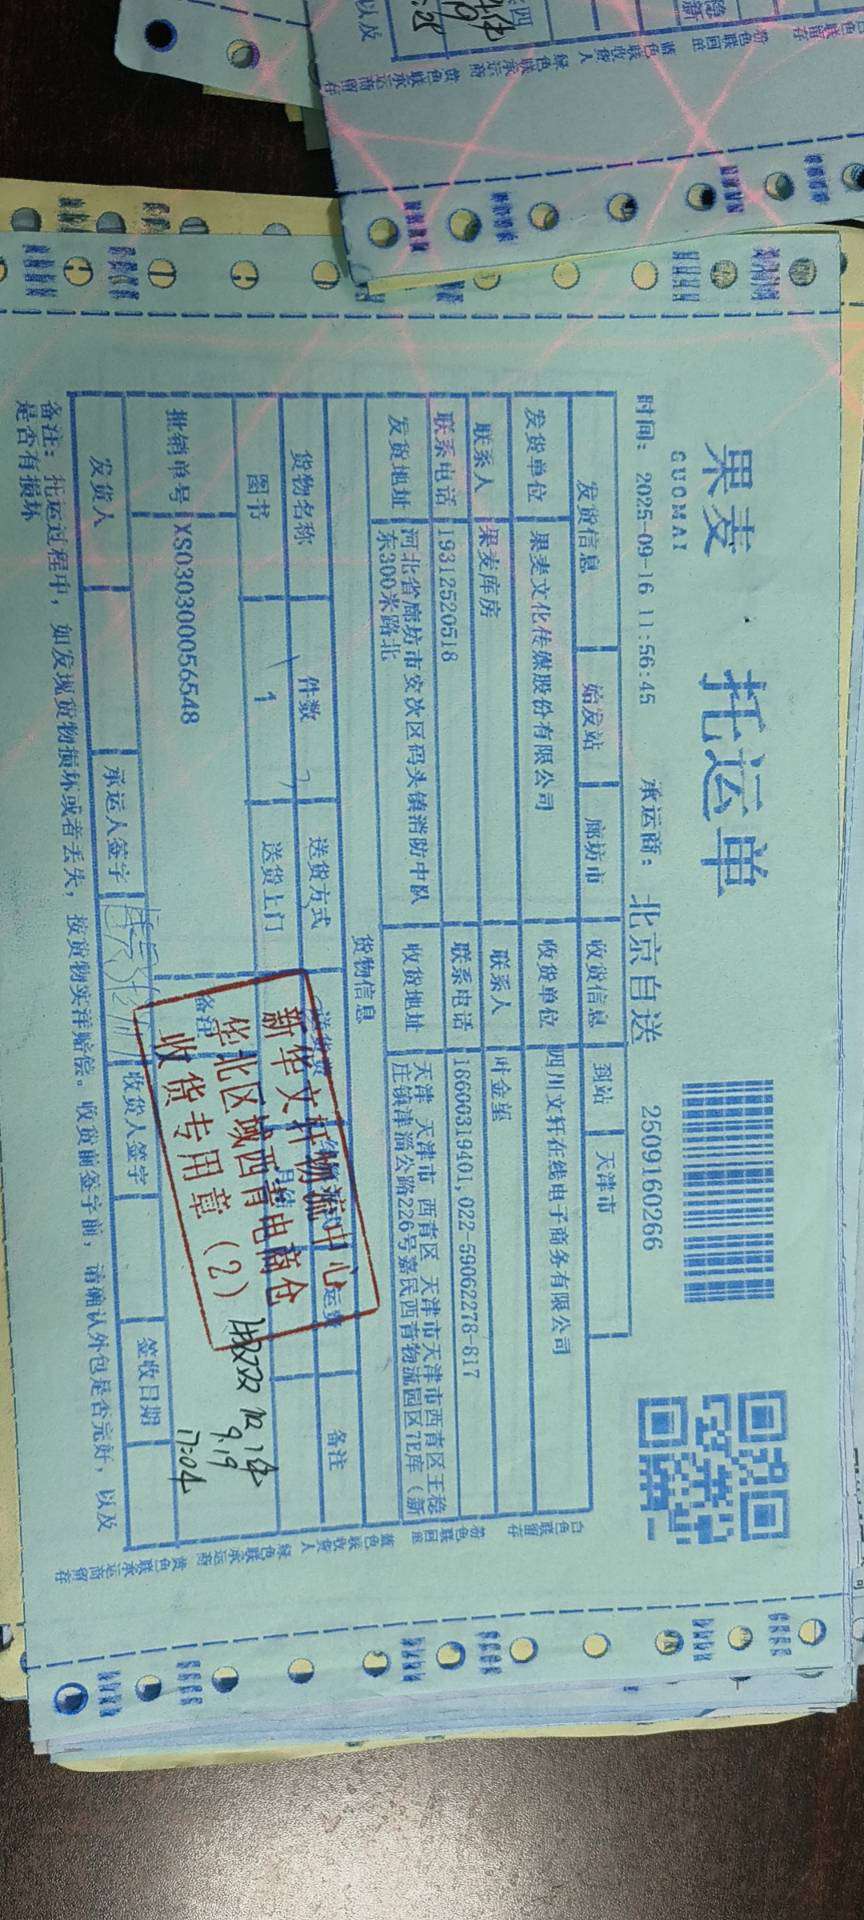 果麦 托运单
GUOMAI
时间: 2025-09-16 11:56:45 承运商: 北京自送 2509160266
发货信息 始发站 廊坊市 收货信息 到站 天津市
发货单位 果麦文化传媒股份有限公司 收货单位 四川文轩在线电子商务有限公司
联系人 果麦库房 联系人 叶金星
联系电话 19312520518 联系电话 18600319401,022-59062278-817
发货地址 河北省廊坊市安次区码头镇消防中队东300米路北 收货地址 天津 天津市 西青区 天津市天津市西青区王稳庄镇津淄公路226号嘉民西青物流园区7E库(新
货物信息
货物名称 件数 送货方式 送货费 运费 备注
图书 1 送货上门 月结
批销单号 XS030300056548 备注
新华文轩物流中心
华北区域西青电商仓
收货专用章(2)
9.19
17:04
发货人 承运人签字 收货人签字 签收日期
备注: 托运过程中, 如发现货物损坏或者丢失, 按货物实洋赔偿。收货前签字前, 请确认外包是否完好, 以及
是否有损坏
白色联留存 粉色联回单 蓝色联收货人 绿色联承运商 黄色联承运商留存